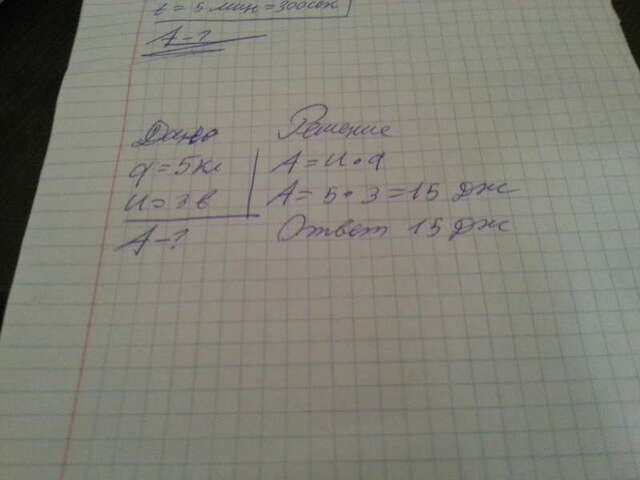 t = 5 мин = 300сек
A - ?
Дано
q = 5 Кл
U = 3 в
A - ?
Решение
A = U • q
A = 5 • 3 = 15 Дж
Ответ 15 Дж